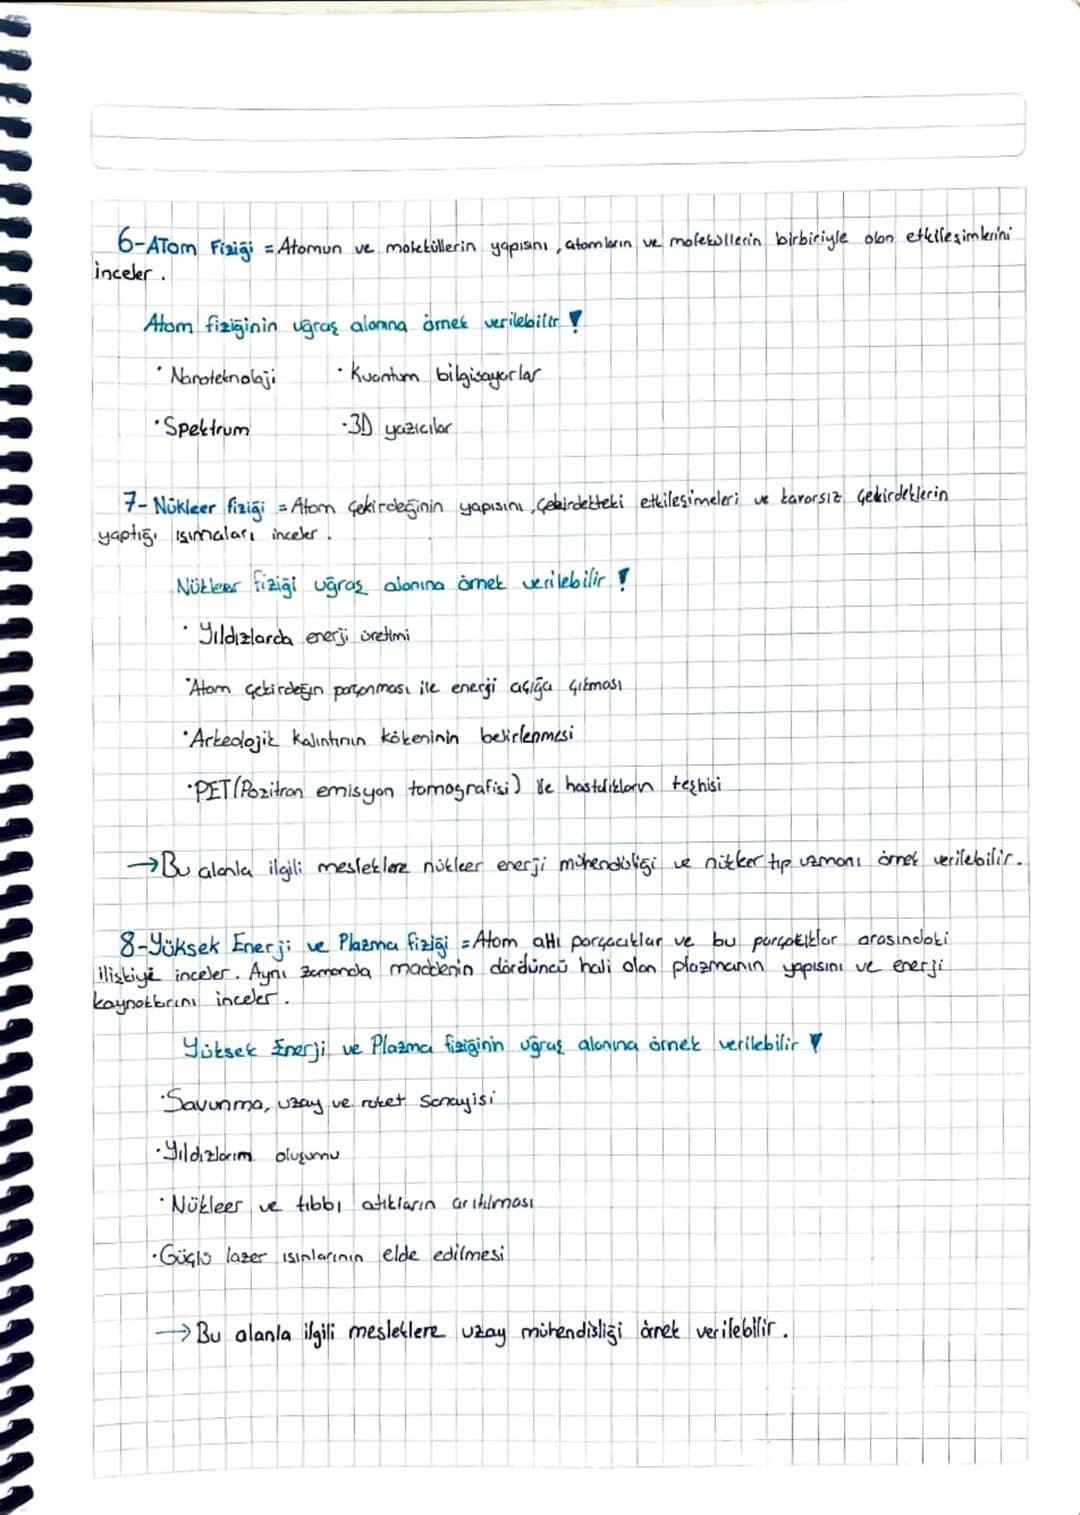 6-Atom Fiziği = Atomun ve moleküllerin yapısını, atomların ve moleküllerin birbiriyle olan etkileşimlerini
inceler.
Atom fiziğinin uğraş alanına örnek verilebilir !
• Nanoteknoloji • Kuantum bilgisayarlar
• Spektrum • 3D yazıcılar
7- Nükleer fiziği = Atom çekirdeğinin yapısını, çekirdekteki etkileşimeleri ve kararsız çekirdeklerin
yaptığı ışımaları inceler.
Nükleer fiziği uğraş alanına örnek verilebilir !
• Yıldızlarda enerji üretimi
• Atom çekirdeğin parçanması ile energi açığa çıkması
• Arkeolojik kalıntının kökeninin belirlenmesi
• PET (Pozitron emisyon tomografisi) ile hastalıkların teşhisi
→ Bu alanla ilgili mesleklere nükleer enerji mühendisliği ve nükker tıp uzmanı örnek verilebilir.
8-Yüksek Enerji ve Plazma fiziği = Atom altı parçacıklar ve bu parçacıklar arasındaki
ilişkiyi inceler. Aynı zamanda maddenin dördüncü hali olan plazmanın yapısını ve enerji
kaynaklarını inceler.
Yüksek Enerji ve Plazma fiziğinin uğraş alanına örnek verilebilir !
• Savunma, uzay ve roket sanayisi
• Yıldızların oluşumu
• Nükleer ve tıbbı atıkların arıtılması
• Güçlü lazer ışınlarının elde edilmesi
→ Bu alanla ilgili mesleklere uzay mühendisliği örnek verilebilir.